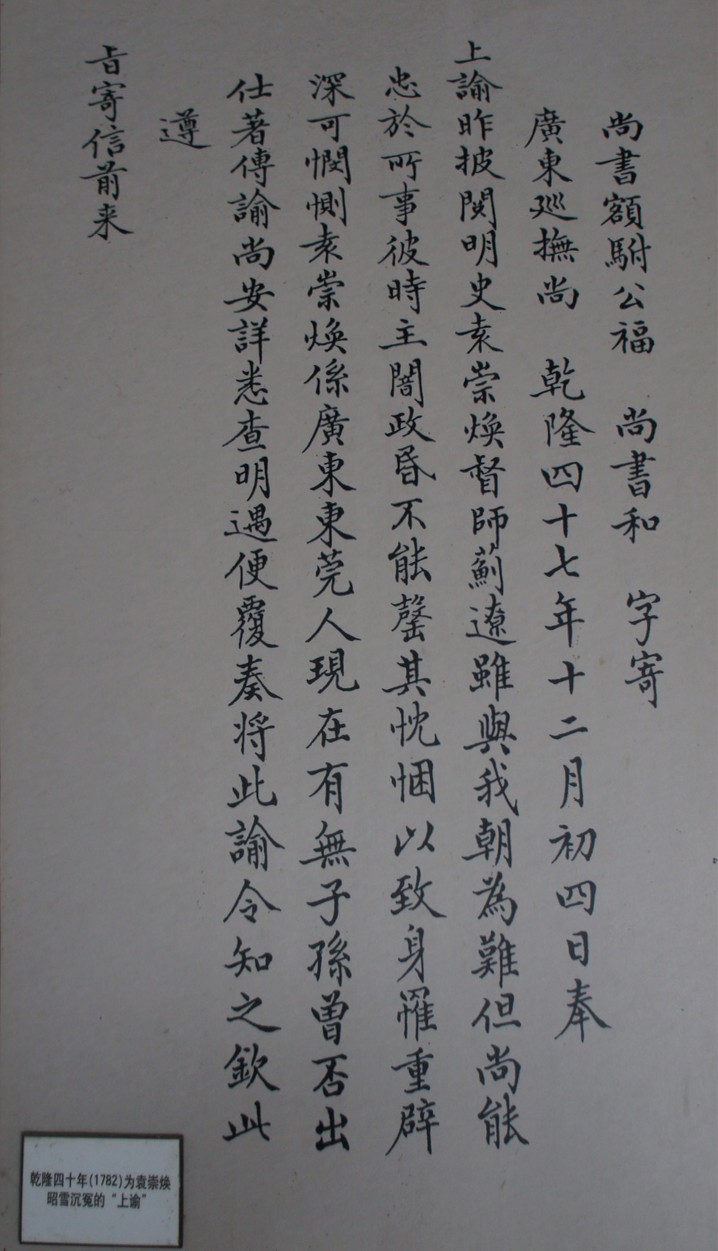 尚書額駙公福　尚書和　字寄
廣東巡撫尚　乾隆四十七年十二月初四日奉
上諭昨披閱明史袁崇煥督師薊遼雖與我朝為難但尚能
忠於所事彼時主闇政昏不能罄其忱悃以致身罹重辟
深可憫惻袁崇煥係廣東東莞人現在有無子孫曾否出
仕著傳諭尚安詳悉查明遇便覆奏将此諭令知之欽此
遵
旨寄信前来
乾隆四十年(1782)为袁崇焕
昭雪沉冤的“上谕”